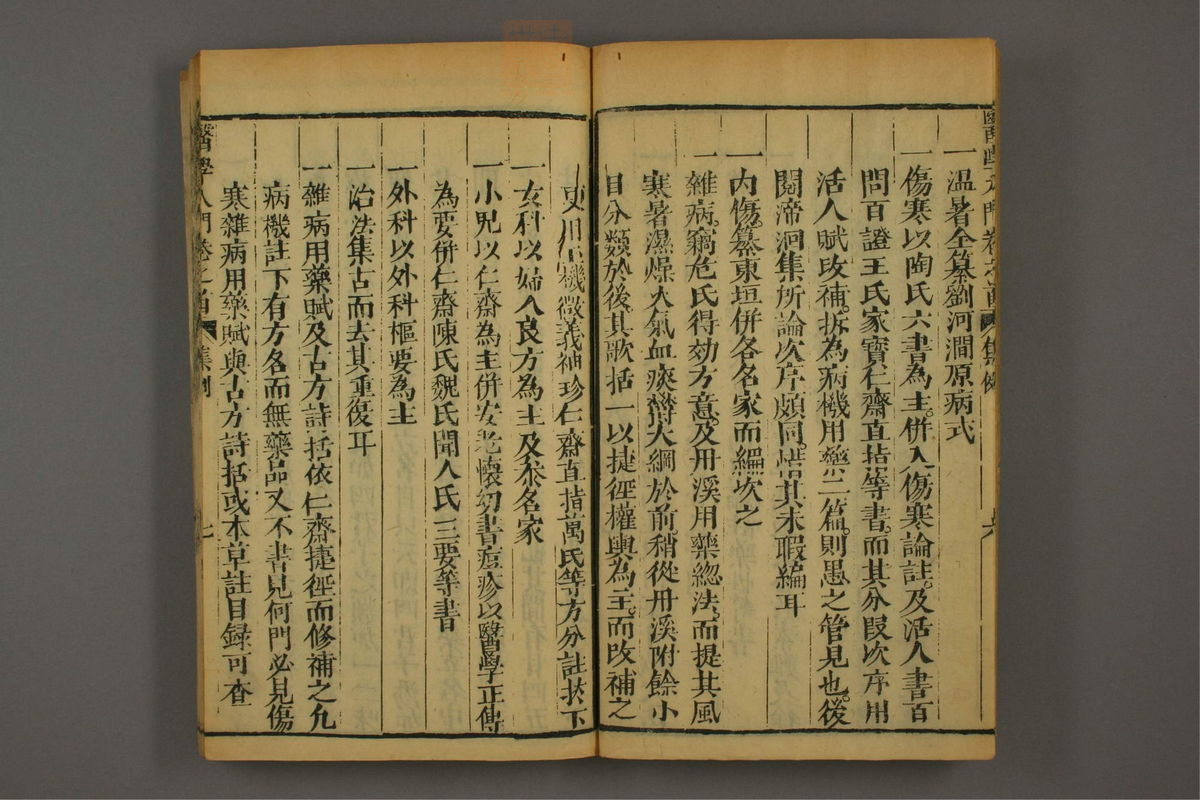 醫學入門卷之首 集例
一溫暑全纂劉河澗原病式
一傷寒以陶氏六書為主。併入傷寒論註及活人書百
問百證王氏家寶仁齋直指等書。而其分段次序用
活人賦攺補。拆為病機用藥二篇。則愚之管見也。後
閱渧洄集所論次序頗同。惜其未暇編耳
一內傷。纂東垣併各名家而編次之
一雜病。竊危氏得効方意。及丹溪用藥縂法。而提其風
寒暑濕燥火氣血痰欝大綱於前。稍從丹溪附餘小
目分類於後。其歌括一以捷徑權輿為主。而攺補之
更用機微義袖珍仁齋直指萬氏等方分註扵下
一女科以婦人良方為主及叅名家
一小兒以仁齋為主併安老懷幼書痘疹以醫學正傳
為要併仁齋陳氏魏氏聞人氏三要等書
一外科以外科樞要為主
一治法集古而去其重復耳
一雜病用藥賦及古方詩括依仁齋捷徑而修補之凢
病機註下有方名而無藥品又不書見何門必見傷
寒雜病用藥賦與古方詩括或本草註目録可查
醫學入門卷之首 集例 七